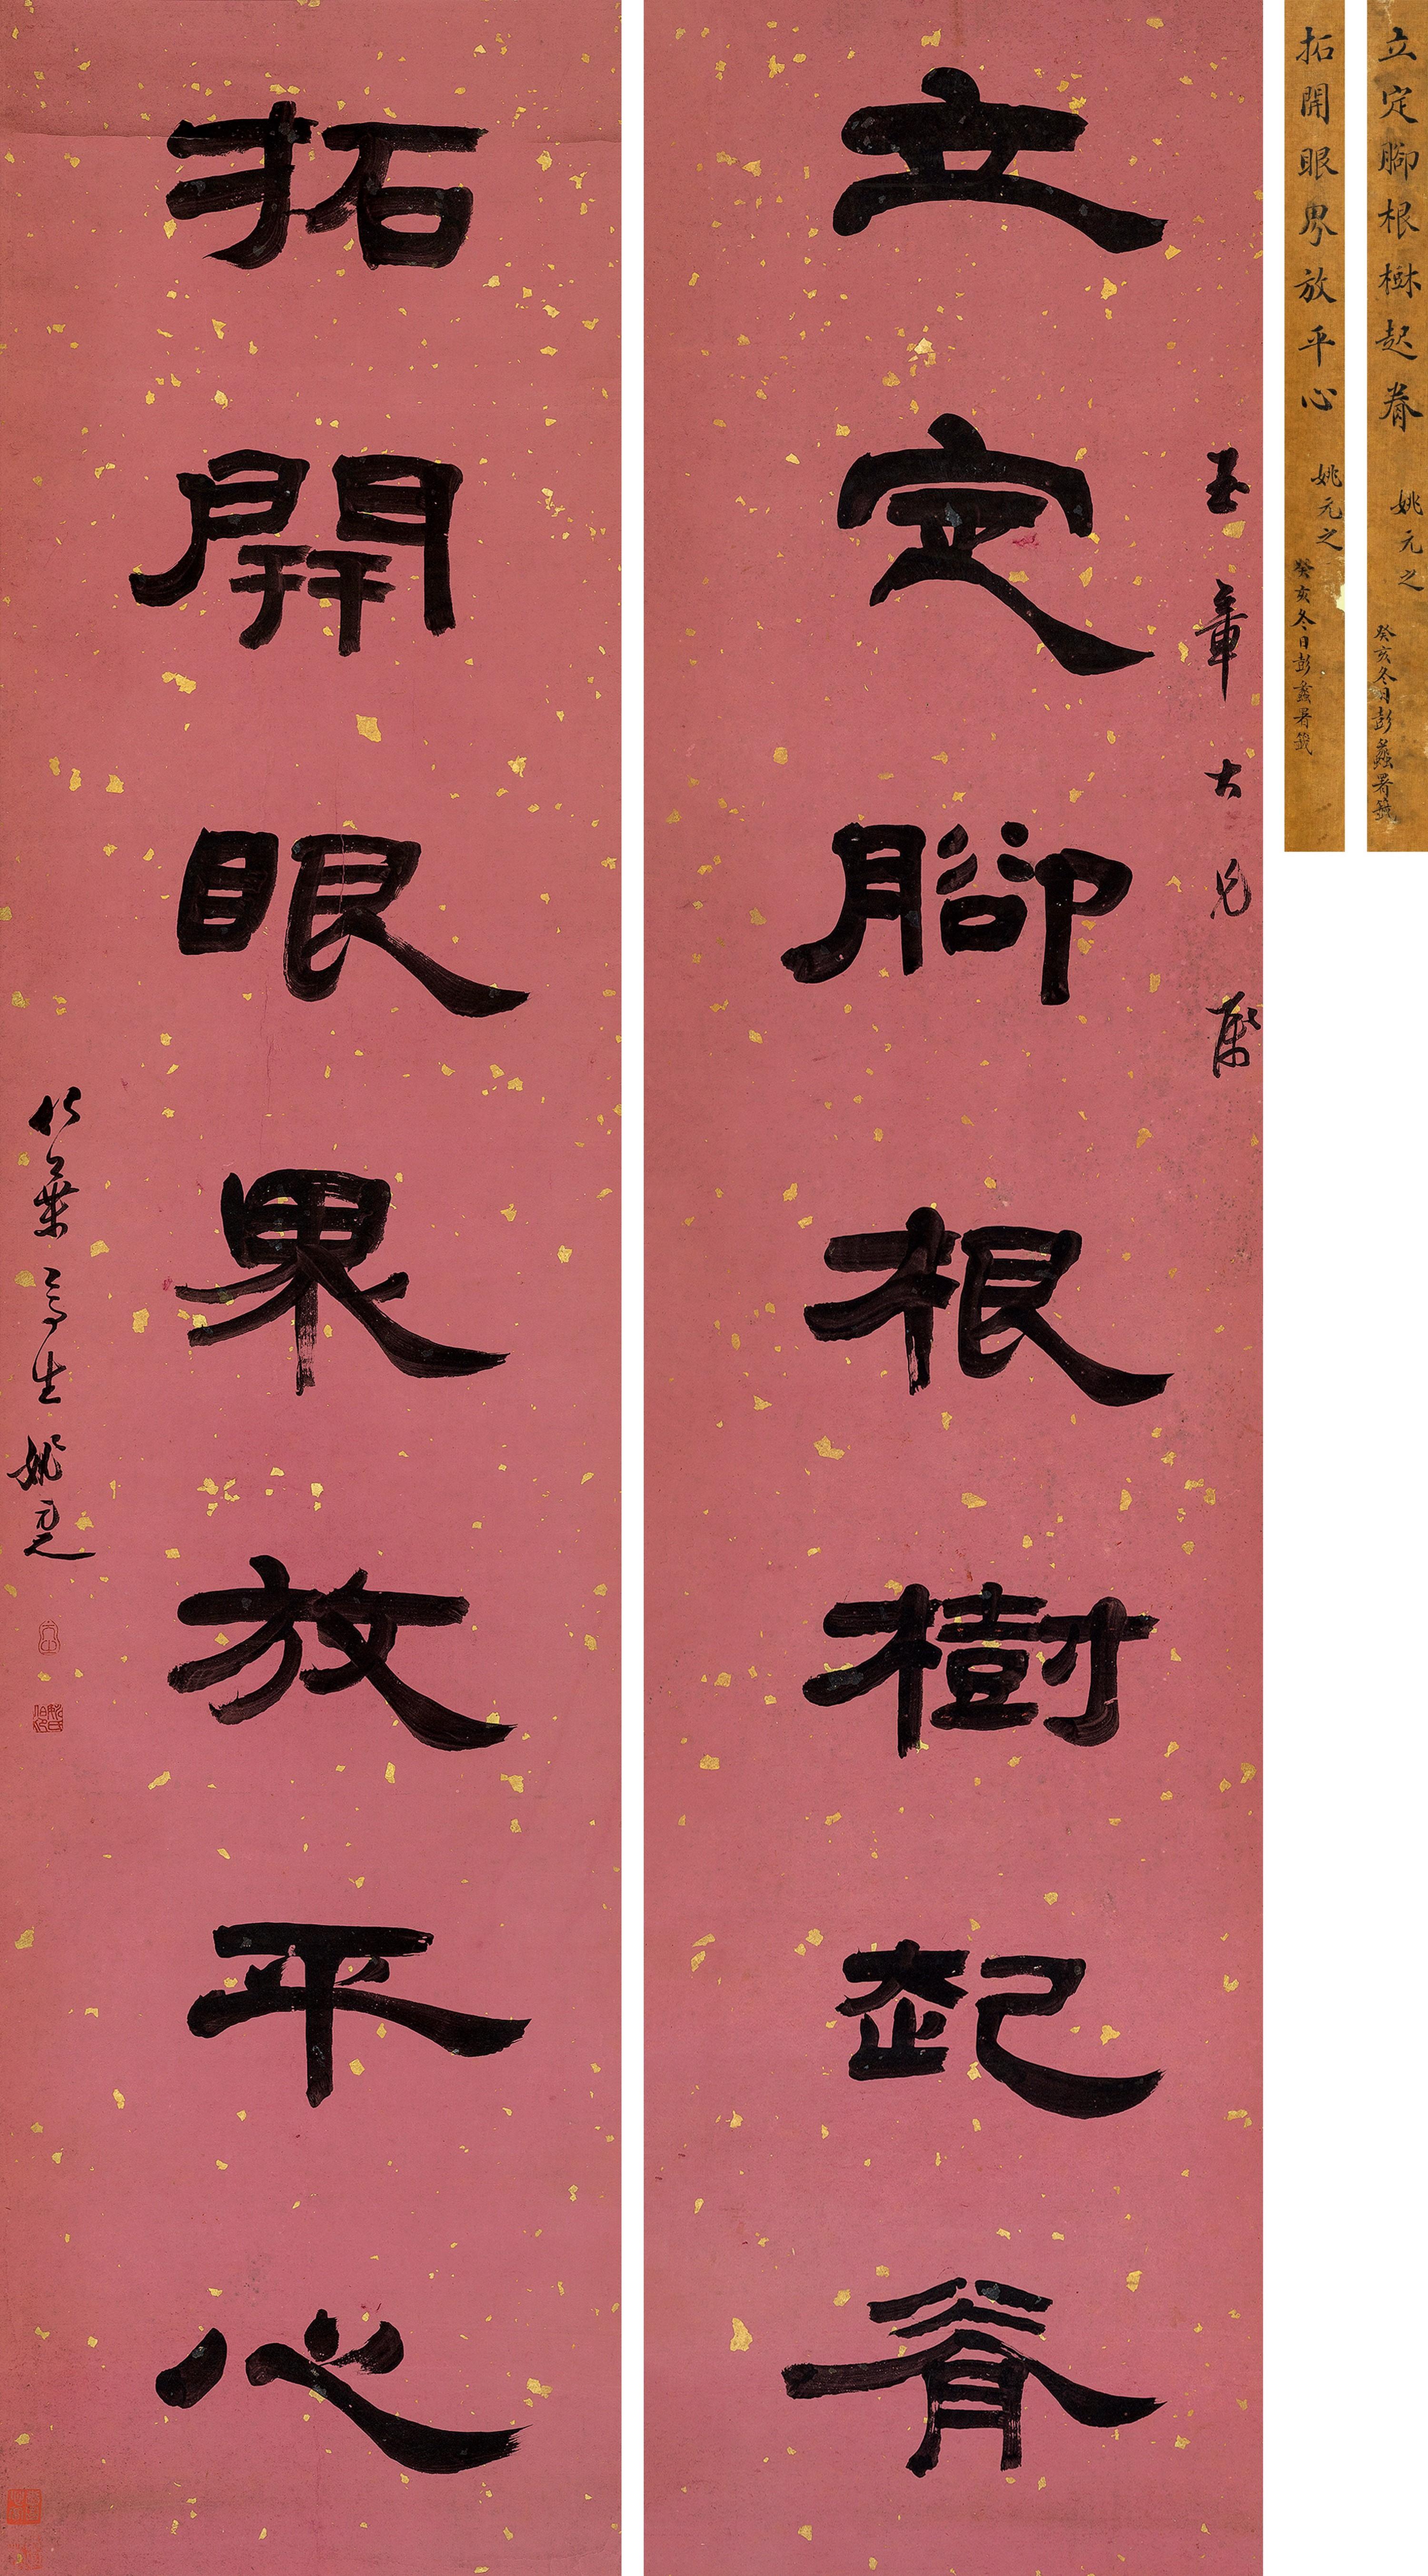 立定腳根樹起脊
玉章大兄屬
拓開眼界放平心
竹葉亭生姚元之
立定腳根樹起脊 姚元之
癸亥冬日彭蠡署籤
拓開眼界放平心 姚元之
癸亥冬日彭蠡署籤